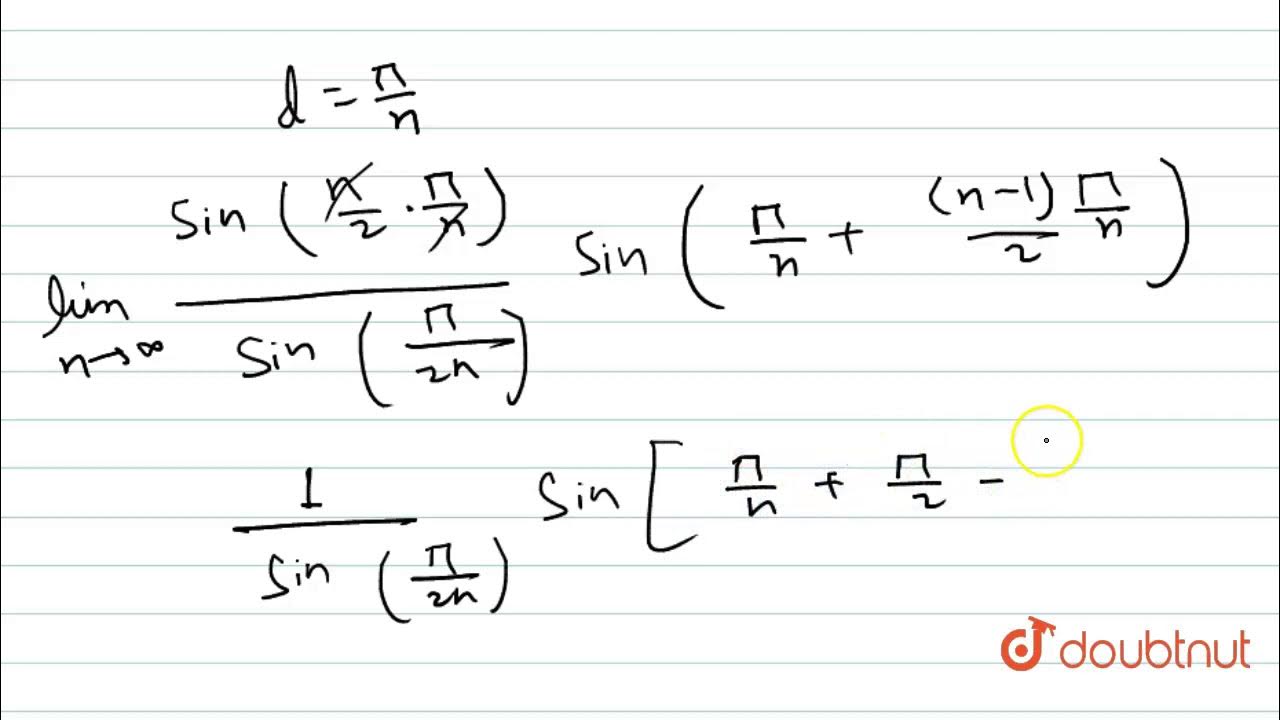 d = π/n
lim n→∞ sin (n/2 · π/n) / sin (π/2n) sin (π/n + (n-1)/2 π/n)
1 / sin (π/2n) sin [π/n + π/2 -
doubtnut